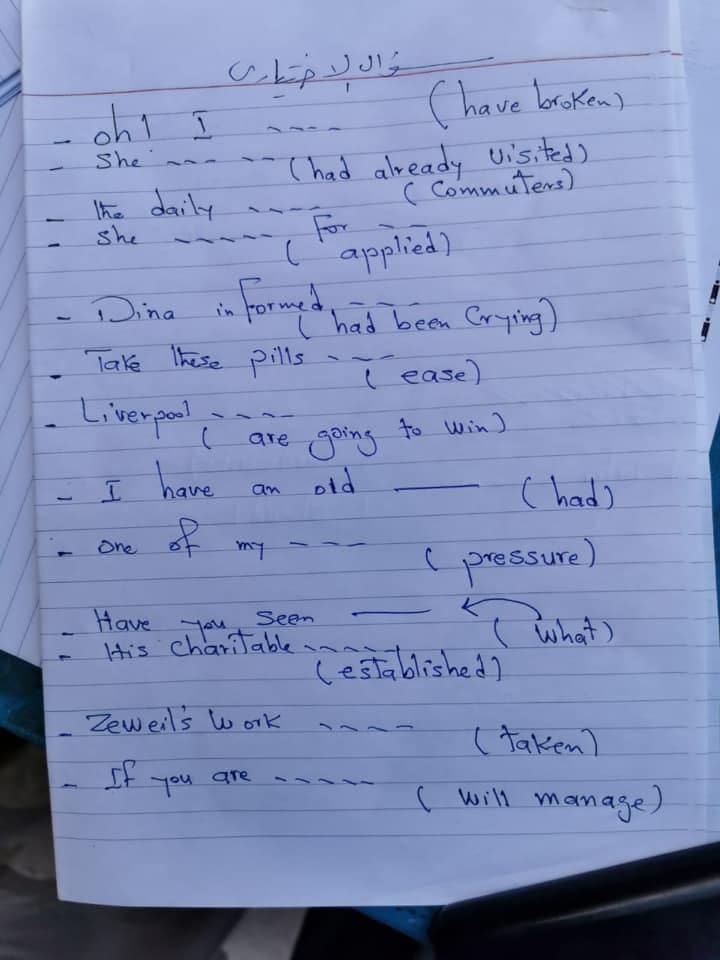 سؤال الاختياري
- oh! I ---- (have broken)
- She --- -- (had already visited)
- The daily ---- (Commuters)
- She ----- For --
( applied)
- Dina informed ---
( had been Crying)
- Take these pills ----
( ease)
- Liverpool ----
( are going to win)
- I have an old —— (had)
- One of my ---
( pressure)
- Have you seen ——
( what)
- His charitable -----
(established)
- Zeweil's work ----
(taken)
- If you are -----
( will manage)